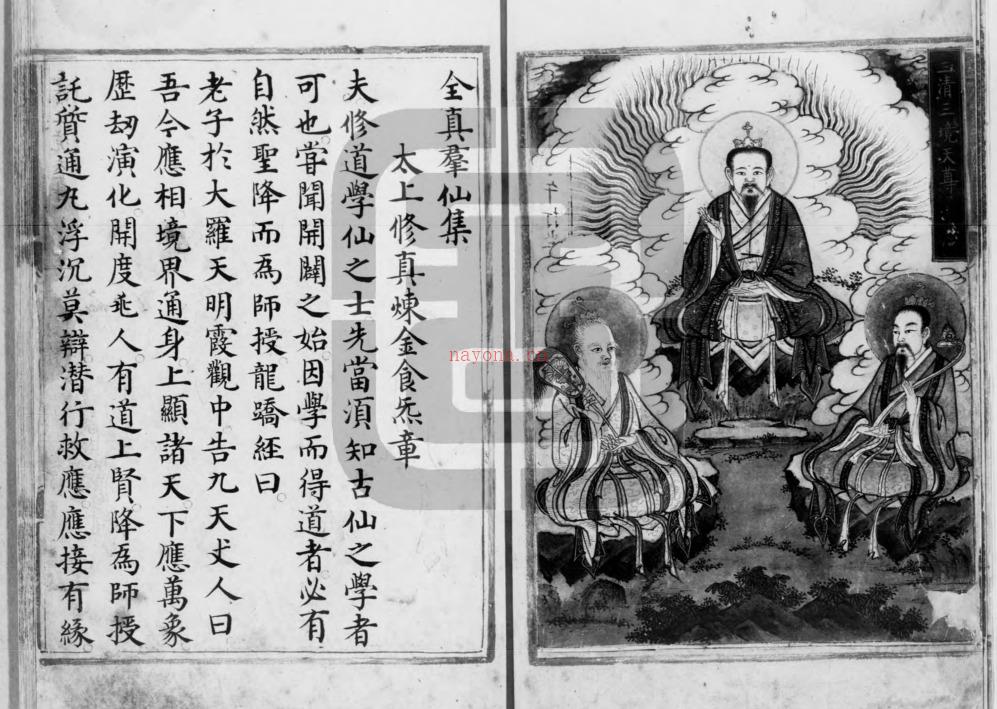 三清三境天尊
全真羣仙集
太上修真煉金食炁章
夫修道學仙之士先當須知古仙之學者
可也甞聞開闢之始因學而得道者必有
自然聖降而爲師授龍蹻經曰
老子於大羅天明霞觀中告九天丈人曰
吾今應相境界通身上顯諸天下應萬象
歷刧演化開度兆人有道上賢降爲師授
託質通凡浮沉莫辯潜行救應應接有緣
nayona.ru